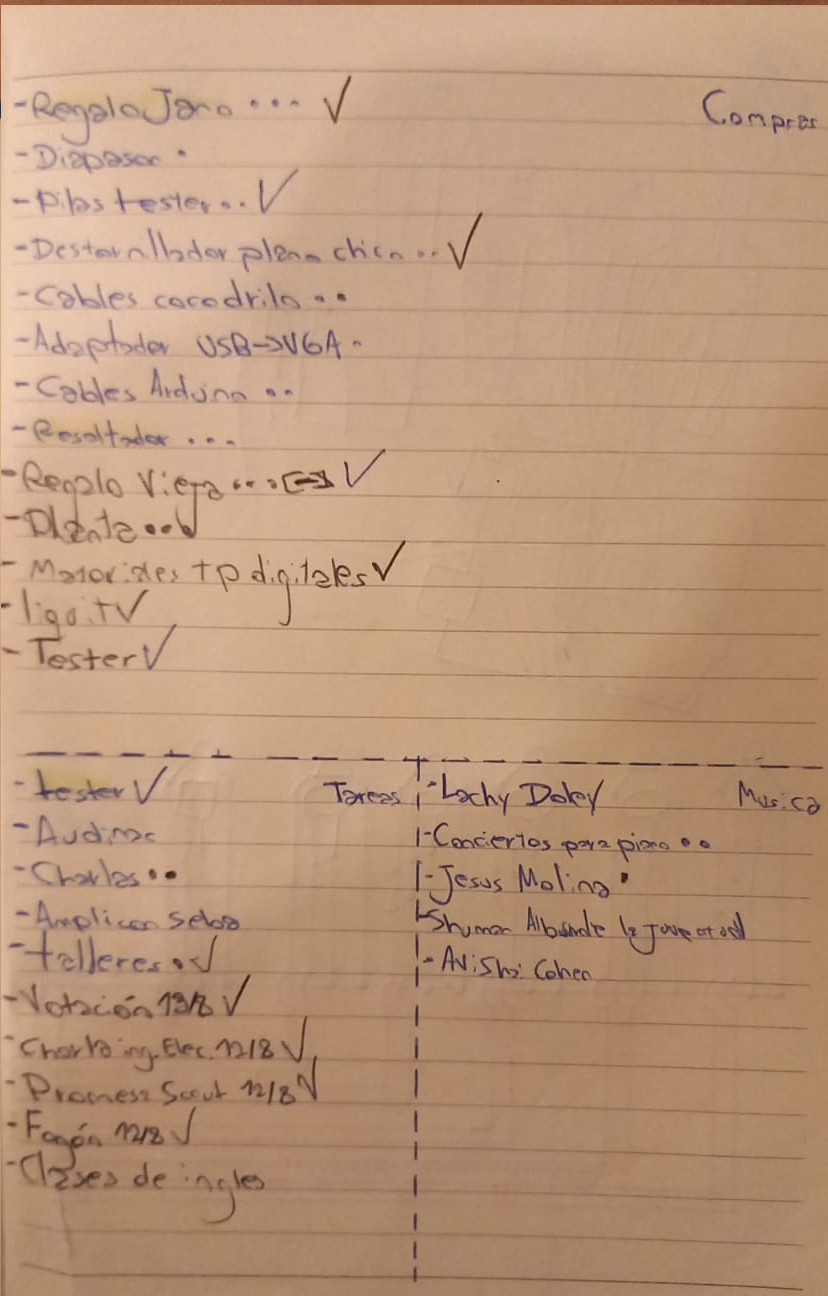 Compras
-Regalo Jano ... ✓
-Diapason .
-Pilas tester .. ✓
-Destornillador plano chico .. ✓
-Cables cocodrilo ..
-Adaptador USB→VGA .
-Cables Arduino ..
-Resaltador ...
-Regalo Vieja ... ✓
-Planta ...
-Materiales tp digitales ✓
-liga.tv
-Tester ✓
Tareas
-tester ✓
-Audimac
-Charlas ..
-Amplicon Seba
-talleres . ✓
-Votación 13/8 ✓
-Charla ing. Elec. 12/8 ✓
-Promesa Scout 12/8 ✓
-Fogón 12/8 ✓
-Clases de ingles
Musica
-Lachy Doley
-Conciertos para piano ..
-Jesus Molina .
-Shuman Album de la juventud
-Avishi Cohen